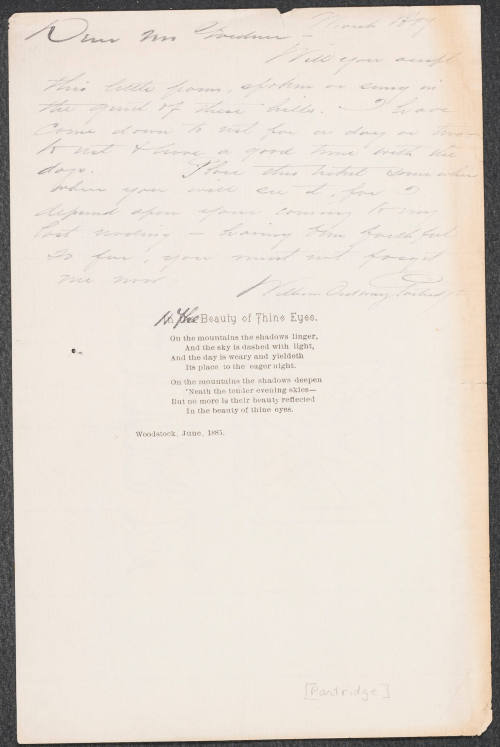 March 18/87
Dear Mrs Gardner –
Will you accept
this little poem, spoken or sung in
the quiet of these hills. I have
come down to rest for a day or two
to rest & have a good time with the
dogs. Place this ticket somewhere
where you will see it, for I
depend upon your coming to my
last reading – having been faithful
so far, you must not forget
me now.
William Ordway Partridge
In the Beauty of Thine Eyes.
On the mountains the shadows linger,
And the sky is dashed with light,
And the day is weary and yieldeth
Its place to the eager night.
On the mountains the shadows deepen
'Neath the tender evening skies—
But no more is their beauty reflected
In the beauty of thine eyes.
Woodstock, June, 1885.
[Partridge]